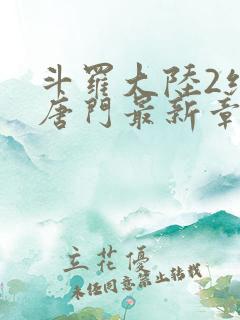 斗羅大陸2絕
唐門最新章
立花優
未经同意禁止转载